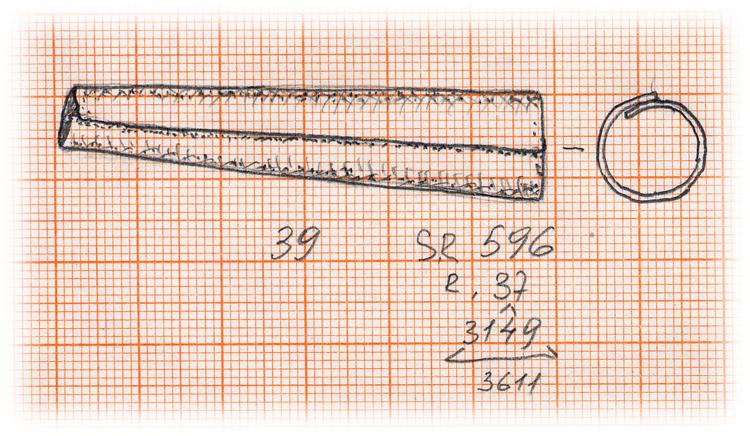 39 SR 596
R. 37
3149
3611